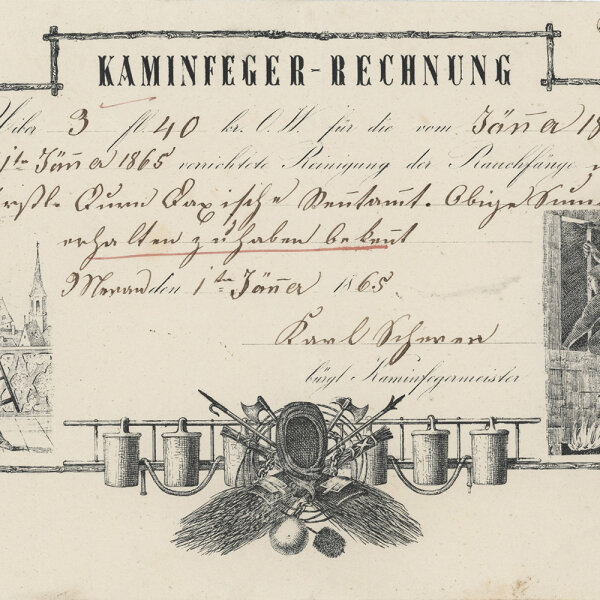 KAMINFEGER-RECHNUNG
Uiber 3 fl. 40 kr. O.W. für die vom Jänner 18
1ten Jänner 1865 verrichtete Reinigung der Rauchfänge
Turn Taxische Rentamt. Obige Sum
erhalten zu haben bekent
Meran den 1ten Jänner 1865.
Karl
bürgl. Kaminfegermeister